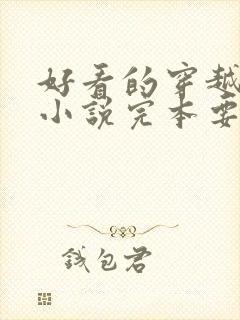 好看的穿越
小说完本要
钱包君